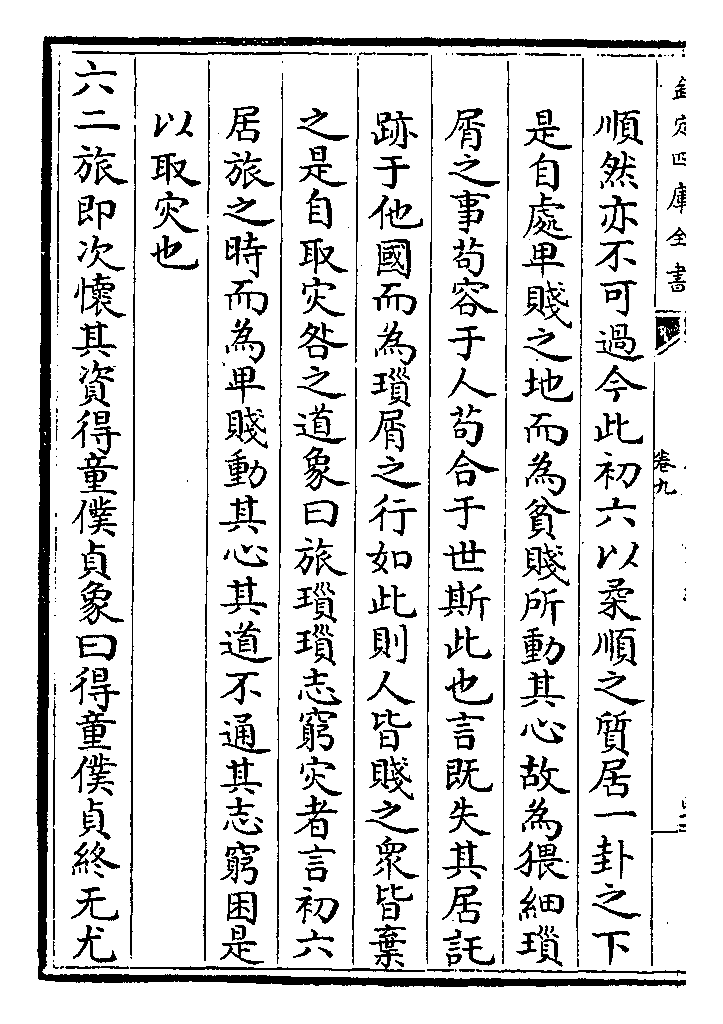 欽定四庫全書
卷九
順然亦不可過今此初六以柔順之質居一卦之下
是自處卑賤之地而為貧賤所動其心故為猥細瑣
屑之事茍容于人茍合于世斯此也言既失其居託
跡于他國而為瑣屑之行如此則人皆賤之衆皆棄
之是自取灾咎之道象曰旅瑣瑣志窮灾者言初六
居旅之時而為卑賤動其心其道不通其志窮困是
以取灾也
六二旅即次懷其資得童僕貞象曰得童僕貞終无尤